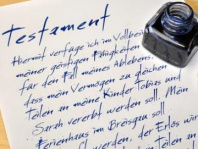 Testament
Hiermit verfüge ich im Vollbesitz
meiner geistigen Fähigkeiten
für den Fall meines Ablebens,
dass mein Vermögen zu gleichen
Teilen an meine Kinder Tobias und
Sarah vererbt werden soll. Mein
Ferienhaus im Breisgau soll
werden, der Erlös